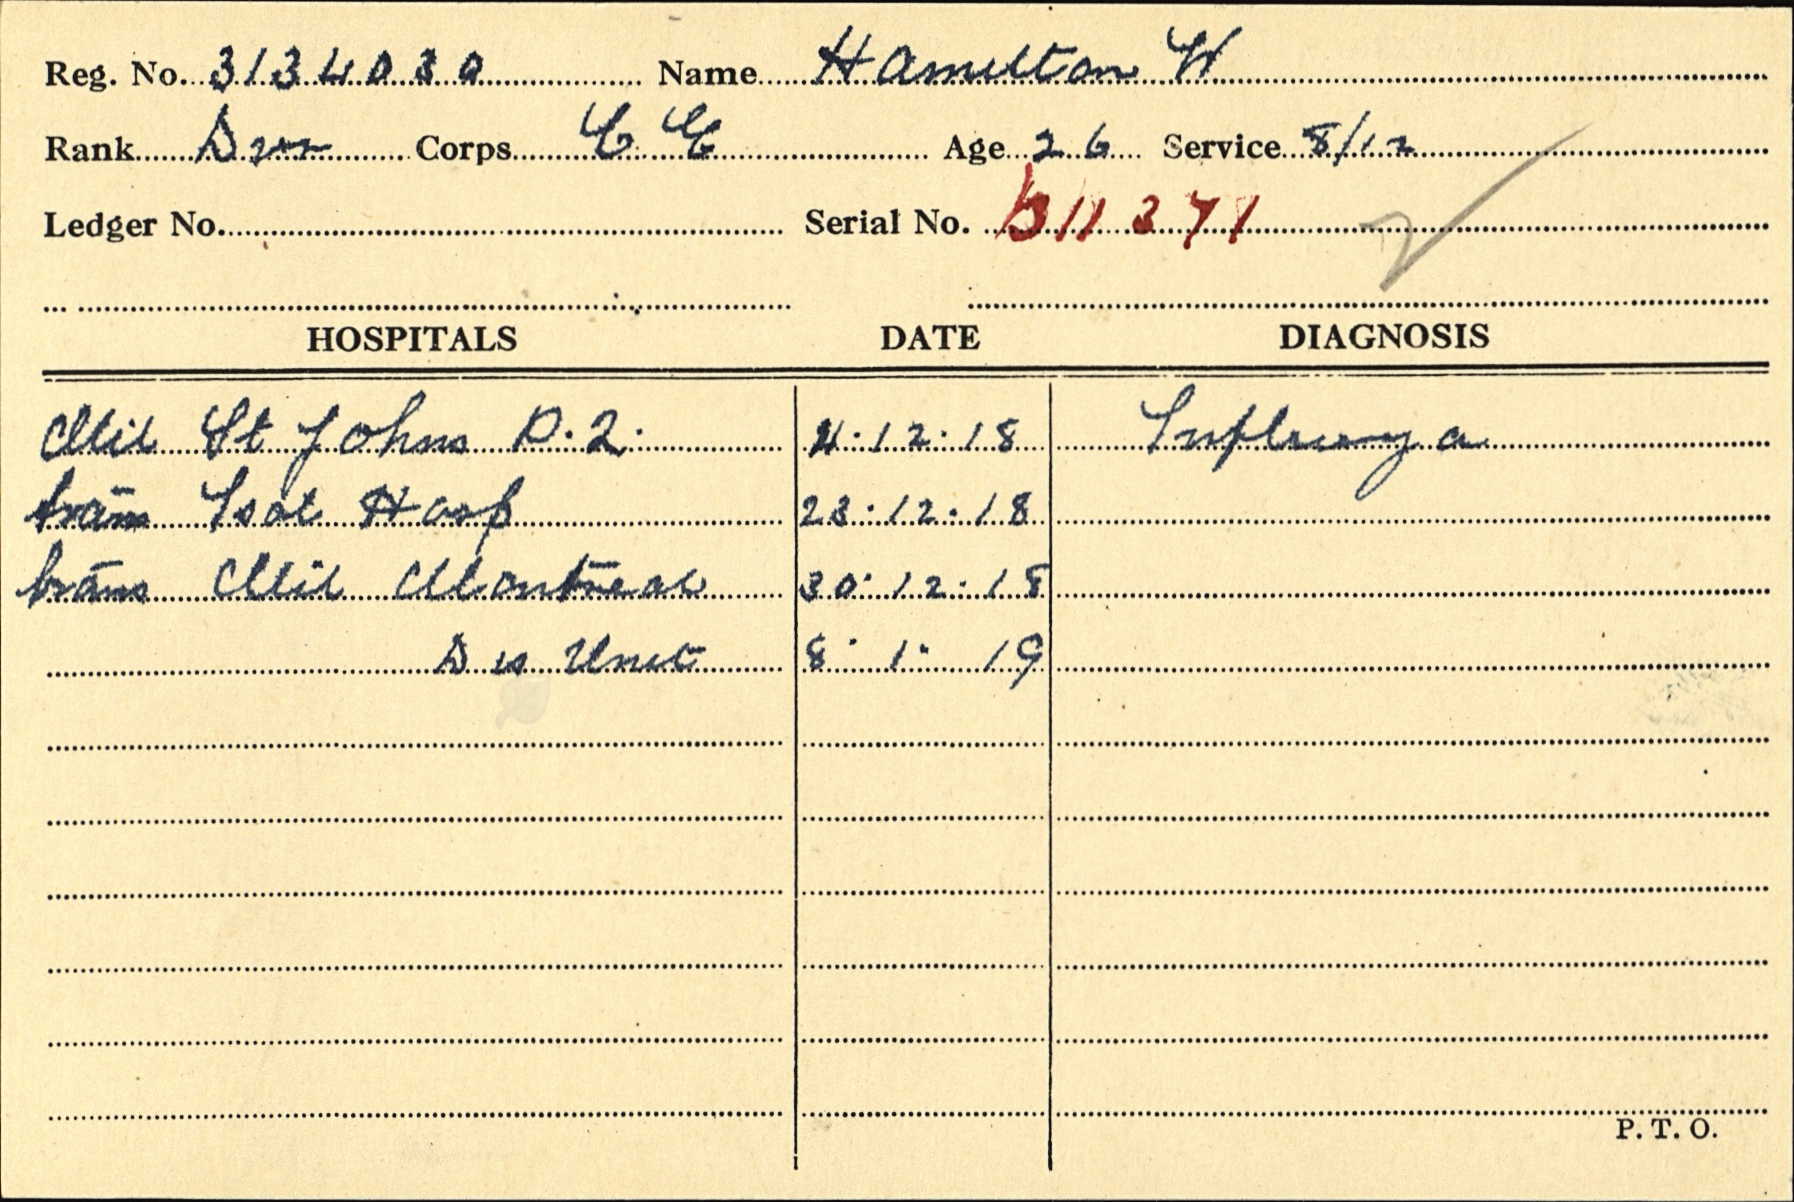 Reg. No. 3134030 Name Hamilton W
Rank Dvr Corps C E Age 26 Service 8/12
Ledger No. Serial No. B11371
HOSPITALS DATE DIAGNOSIS
Mil St Johns P.Q. 12.18 Influenza
trans Isol Hosp 23.12.18
trans Mil Montreal 30.12.18
Dis Unit 8.1.19
P.T.O.